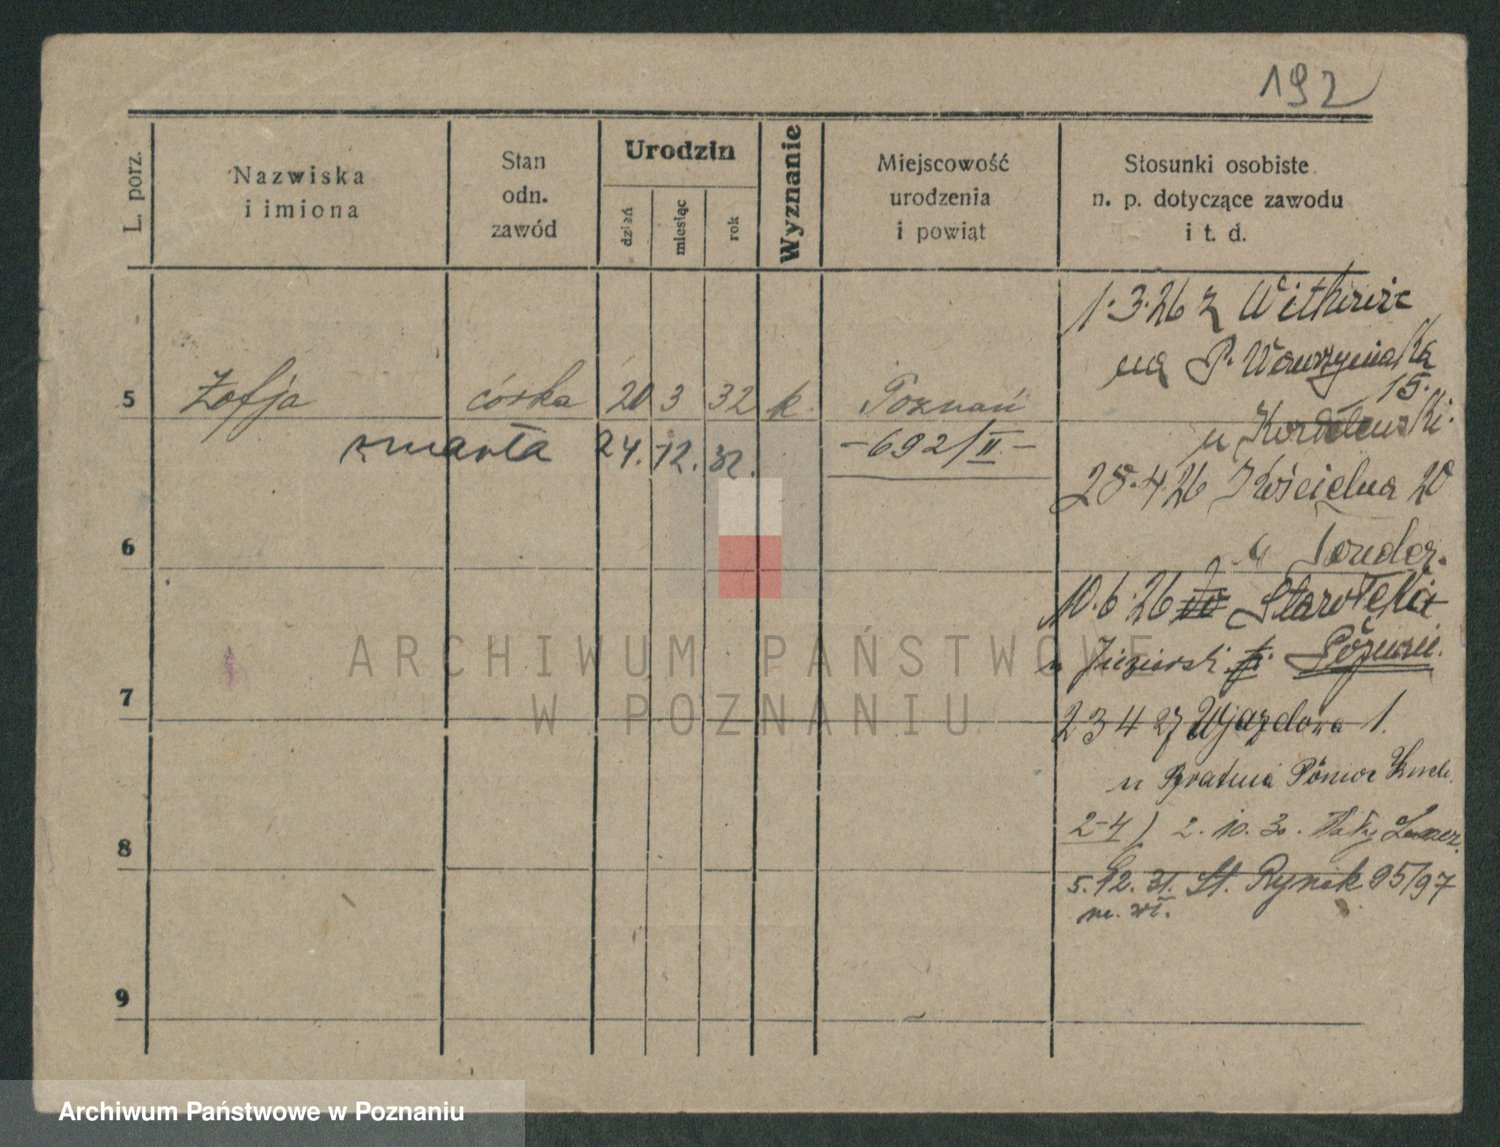 192
L. porz.
Nazwiska
i imiona
Stan
odn.
zawód
Urodzin
dzień
miesiąc
rok
Wyznanie
Miejscowość
urodzenia
i powiat
Stosunki osobiste
n. p. dotyczące zawodu
i t. d.
1.3.26 z
na P. Wawrzyniaka
15.
5 Zofja córka 20 3 32 k. Poznań
u
zmarła 24. 12. 32. -692/II-
28.4.26 Kościelna 20
6
10.6.26 Starołęka
u
7
23 4 27 Wjazdowa 1.
u Bratnia Pomoc
2-4) 2. 10. 30.
8
5. 12. 31. St. Rynek 95/97
m. wł.
9
ARCHIWUM PAŃSTWOWE
W POZNANIU
Archiwum Państwowe w Poznaniu